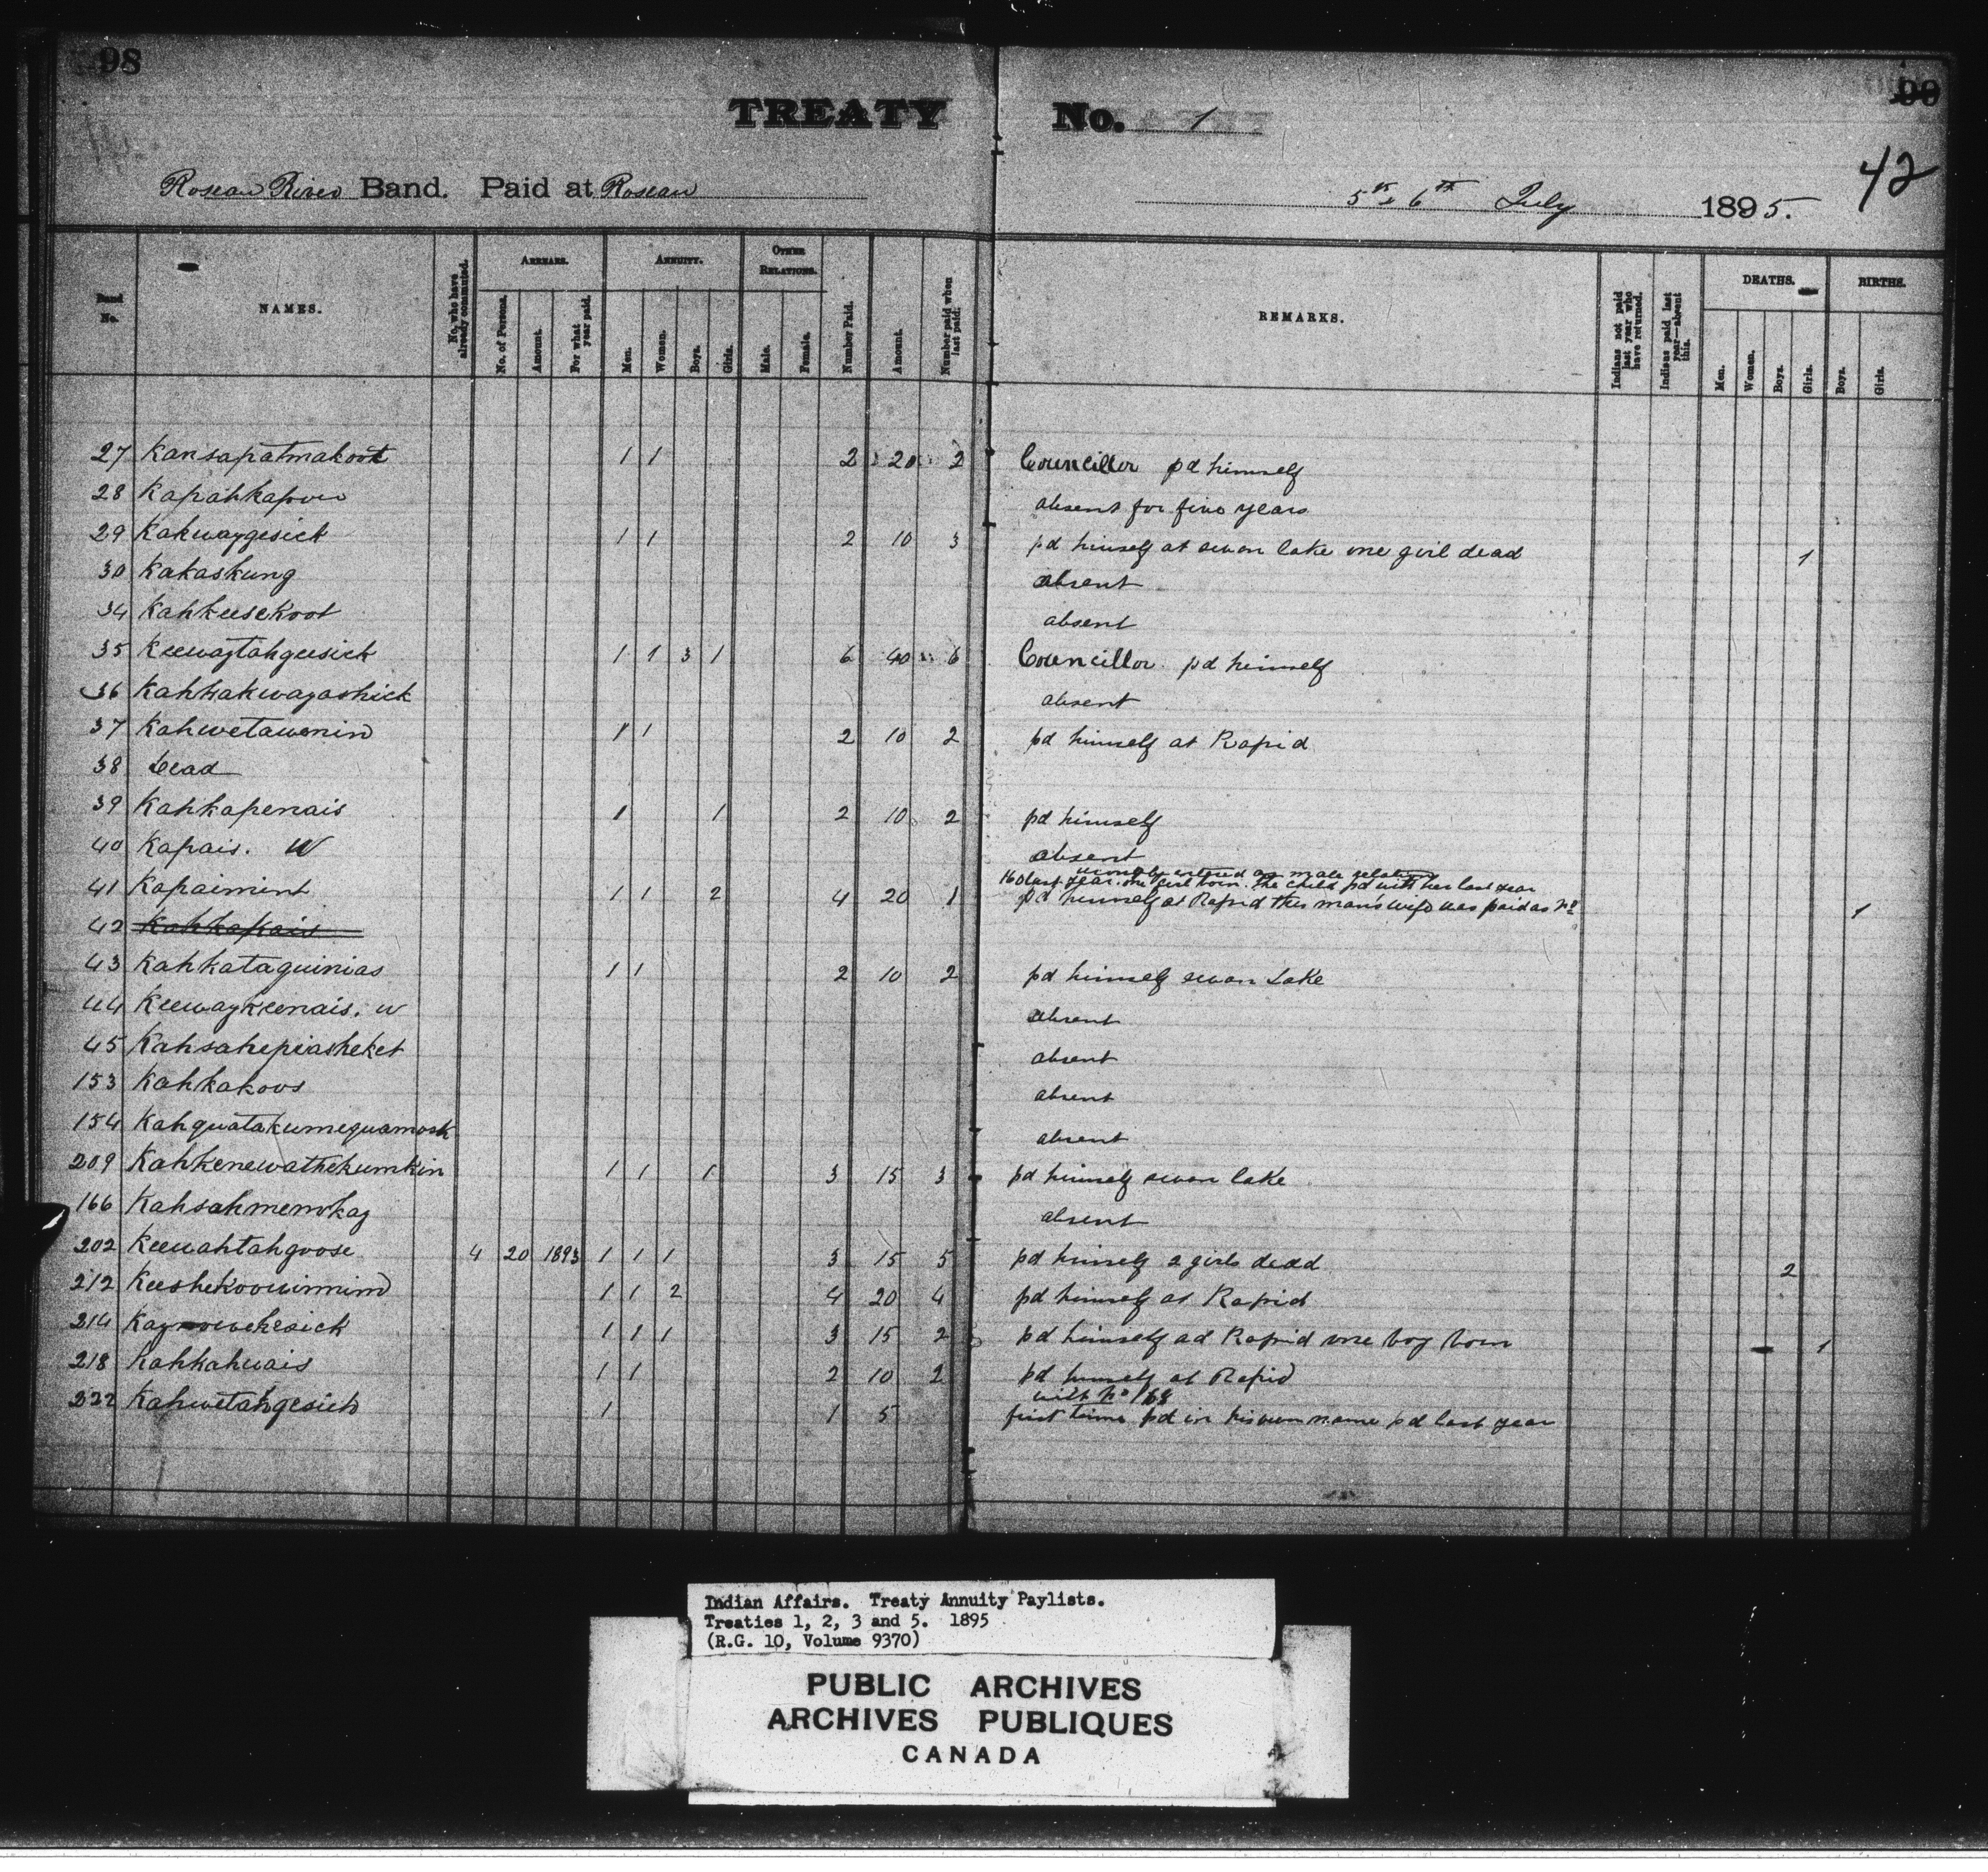 98
99
TREATY No. 1
42
Roseau River Band. Paid at Roseau
5th & 6th July 1895.
Band No.
NAMES.
No. who have already commuted.
ARREARS.
No. of Persons.
Amount.
For what year paid.
ANNUITY.
Men.
Women.
Boys.
Girls.
OTHER RELATIONS.
Male.
Female.
Number Paid.
Amount.
Number paid when last paid.
REMARKS.
Indians not paid last year who have returned.
Indians paid last year—absent this.
DEATHS.
Men.
Women.
Boys.
Girls.
BIRTHS.
Boys.
Girls.
27 Kansapatmakoot 1 1 2 20 2 Councillor pd himself
28 Kapahkapow absent for five years
29 Kakwaygesick 1 1 2 10 3 pd himself at swan lake one girl dead 1
30 Kakaskung absent
34 Kahkeesekoot absent
35 Keewaytahgeesick 1 1 3 1 6 40 6 Councillor pd himself
36 Kahkakwayashick absent
37 Kahwetawenin 1 1 2 10 2 pd himself at Rapid
38 Dead
39 Kahkapenais 1 1 2 10 2 pd himself
40 Kapais. W absent
wrongly entered as male relative
160 last year. one girl born. the child pd with her last year
41 Kapaimint 1 1 2 4 20 1 pd himself at Rapid this man's wife was paid as No 1
42 Kahkapais
43 Kahkataguinias 1 1 2 10 2 pd himself swan Lake
44 Keewaykeenais. W absent
45 Kahsahepiasheket absent
153 Kahkakoos absent
154 Kahquatakumequamosk absent
209 Kahkenewathekumkin 1 1 1 3 15 3 pd himself swan lake
166 Kahsahmemokay absent
202 Keewahtahgoose 4 20 1893 1 1 1 3 15 5 pd himself 2 girls dead 2
212 Keeshekoowinmind 1 1 2 4 20 4 pd himself at Rapid
214 Kaynowekesick 1 1 1 3 15 2 pd himself ad Rapid one boy born 1
218 Kahkahwais 1 1 2 10 2 pd himself at Rapid
with No 168
222 Kahwetahgesick 1 1 5 first time pd in his own name pd last year
Indian Affairs. Treaty Annuity Paylists.
Treaties 1, 2, 3 and 5. 1895
(R.G. 10, Volume 9370)
PUBLIC ARCHIVES
ARCHIVES PUBLIQUES
CANADA